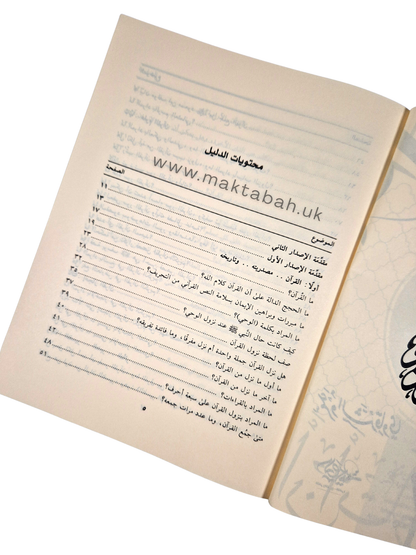 محتويات الدليل
www.maktabah.uk
الموضوع الصفحة
مقدّمة الإصدار الثاني ١١
مقدّمة الإصدار الأول ١٣
أولًا: القرآن .. مصدريته .. وتاريخه
ما القرآن؟
ما الحجج الدالة على أن القرآن كلام الله؟
ما مبررات وبراهين الإيمان بسلامة النص القرآني من التحريف؟
ما المراد بكلمة (الوحي)؟
كيف كانت حال النَّبي ﷺ عند نزول الوحي؟
صف لحظة نزول القرآن
هل نزل القرآن جملة واحدة أم نزل مفرقًا، وما فائدة تفريقه؟
ما أول ما نزل من القرآن؟
ما آخر ما نزل من القرآن؟
ما المراد بالقراءات؟
ما المراد بنزول القرآن على سبعة أحرف؟
متىٰ جُمع القرآن، وما عدد مرات جمعه؟
٥